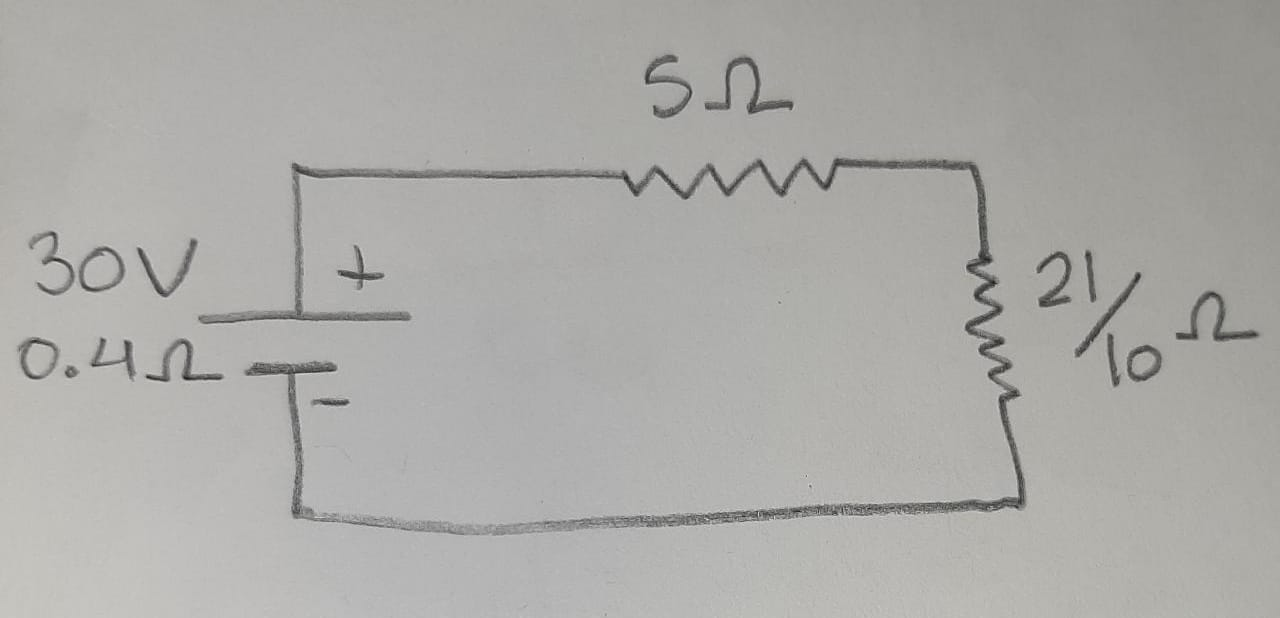 5Ω
30V
+
0.4Ω
-
21/10 Ω